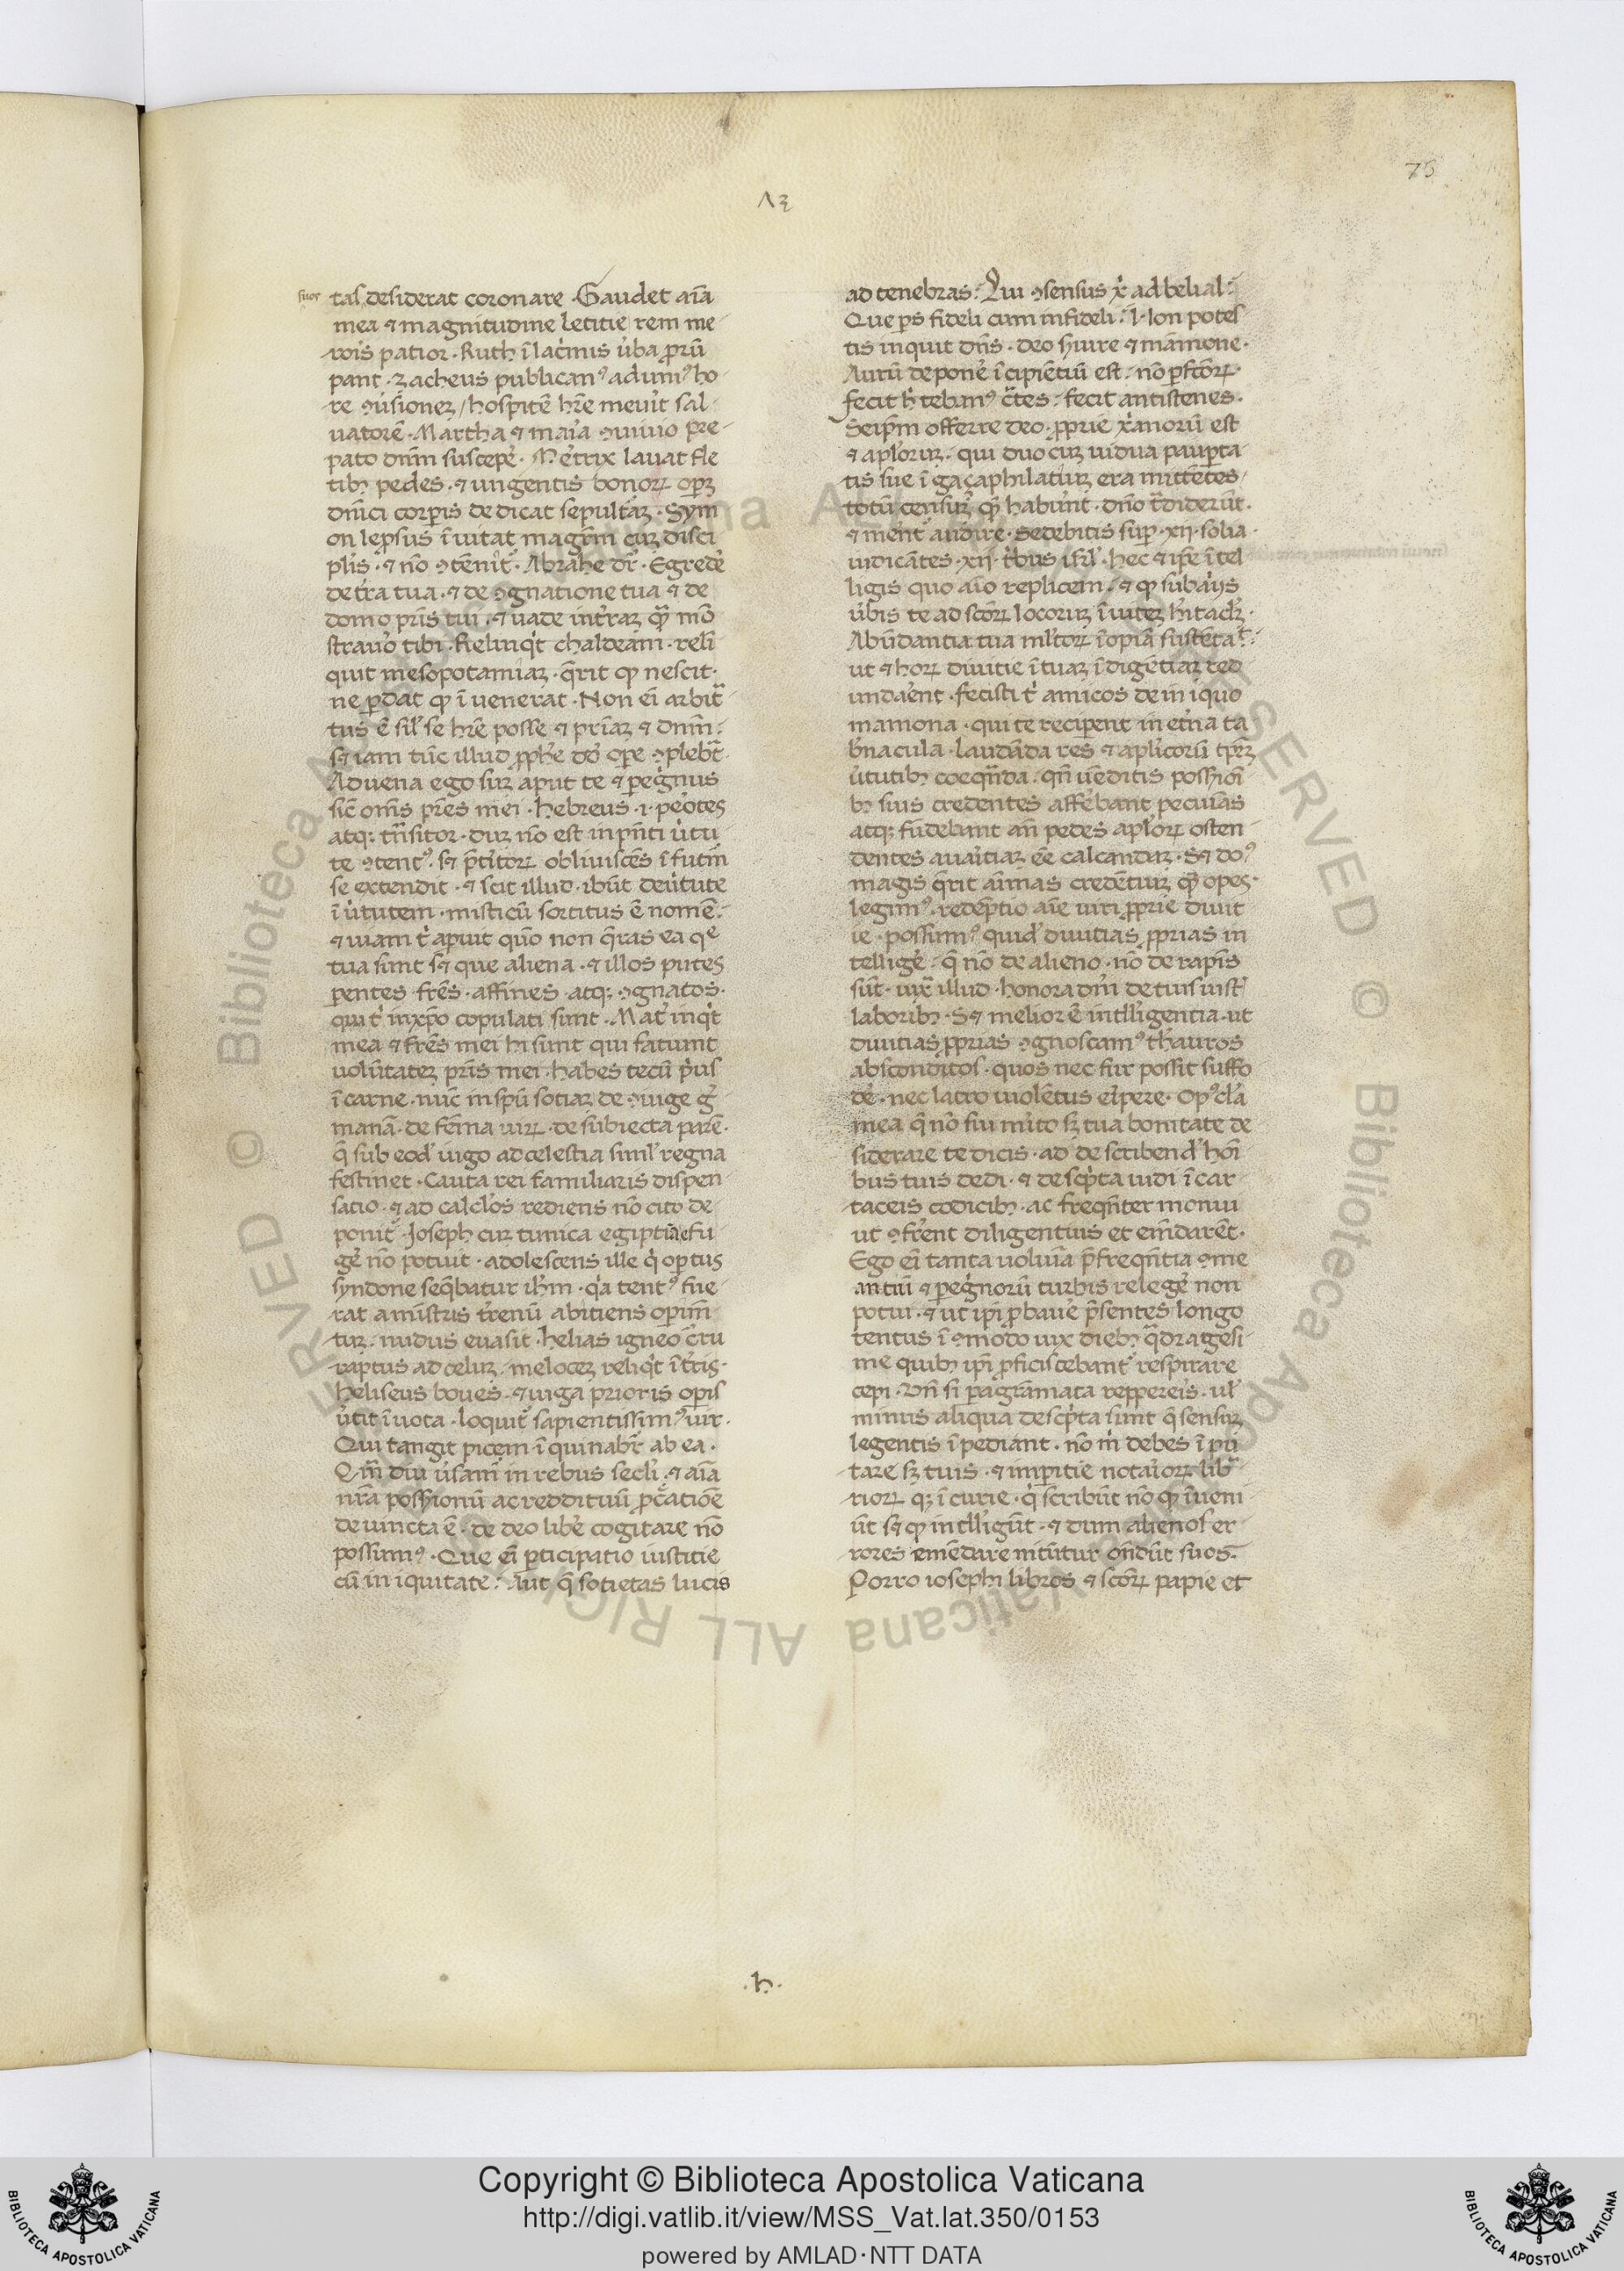 75
suos
tas desiderat coronare. Gaudet aīa
mea ⁊ magnitudine letitie rem me
roris patior. Ruth ī lacͥmis ūba prorū
pant. Zacheus publicanꝰ ad unīꝰ ho
re ꝯuͥsionez / hospitē hr̄e meruit sal
uatorē. Martha ⁊ maͥa ꝯuiuio pre
pato dnm̄ suscepe̓. Me̓trix lauat fle
tibꝫ pedes. ⁊ ungentis bonoꝝ opeꝫ
dnīci corꝑis dedicat sepultaꝫ. Sym
on leprosus īuitat magrm̄ cuꝫ disci
plis̄. ⁊ nō ꝯtēnit᷑. Abrahe dr̄. Egrede̓
de tr̄a tua. ⁊ de ꝯgnatione tua ⁊ de
domo pr̄is tui. ⁊ uade in tr̄aꝫ quā mō
strauo̓ tibi. Relinqͥt chaldeam. relī
quit mesopotamiaꝫ. q̄rit qꝫ nescit.
ne ꝑdat qꝫ īuenerat. Non eī arbit̄
tus ē sil̓ se hr̄e posse ⁊ pr̄iaꝫ ⁊ dnm̄.
sꝫ iam tūc illud ꝓph̓e dō ope ꝯplebat᷑
Aduena ego suꝫ aput te ⁊ peg̓nus
sic̄ om̄s pr̄es mei. hebreus .i. pe̓otes
atqꝫ tn̄sitor. duꝫ nō est in pn̄ti uͥtu
te ꝯtentꝰ. sꝫ p̄ti̓toꝝ obliuiscēs ī futur̄
se extendit. ⁊ scit illud. ibūt de uͥtute
ī uͥtutem. misticū sortitus ē nomē.
⁊ uiam tͥ apuit quō non q̄ras ea qᵉ
tua sunt sꝫ que aliena. ⁊ illos putes
ꝑentes. fr̄es. affines. atqꝫ ꝯgnatos.
qui tͥ in xp̄o copulati sunt. Mat̓ inqͥt
mea ⁊ fr̄es mei hi sunt qui faciunt
uolūtateꝫ pr̄is mei. habes tecū pͥus
ī carne. nūc in spū sociaꝫ de ꝯiuge g̓
manā. de femīa uiꝝ. de subiecta parē.
q̄ sub eod̓ iugo ad celestia simil̓ regna
festinet. Cauta rei familiaris dispen
satio. ⁊ ad calcl̓os rediens nō cito de
ponit᷑. Joseph cuꝫ tunica egiptiā efu
ge̓ nō potuit. adolescens ille qͥ optus
syndone seq̄batur ih̄m. qͥa tentꝰ fue
rat a ministris tr̄enū abitiens opim̄
tuꝫ. nudus euasit. helias igneo cr̄ru
raptus ad celuꝫ. melotez reliqͥt ī tr̄is.
heliseus boues. ⁊ iuga prioris opis
uͥtit ī uota. loquit᷑ sapientissimꝰ uir.
Qui tangit picem īquinabit᷑ ab ea.
Qm̄ diu uͥsam̄ in rebus secl̓i. ⁊ aīa
nr̄a possʒionū ac reddituū ꝓcatiōe
deuincta ē. de deo libe̓ cogitare nō
possumꝰ. Que eī ꝑticipatio iustitie
cū iniquitate? Aut q̄ sotietas lucis
ad tenebras? Qui ꝯsensus xͥ ad belial?
Que ps̄ fideli cum infideli? Non potes
tis inquit dn̄s. deo s̓uire ⁊ mamone.
Aurū depone̓ īcipiētiū est. nō ꝑfctōꝝ.
fecit h̓ tebanꝰ cr̄tes. fecit antistenes.
Seip̄m offerre deo. ꝓprie xͥanorū est
⁊ apl̓oruꝫ. qui duo cuꝫ uidua pauꝑta
tis sue ī gaçaphilatiuꝫ era mittētes
totū censuꝫ quē habunt. dn̄o tr̄diderūt.
⁊ me̓nt᷑ audire. Sedebitis suꝑ .xii. solia
iudicātes .xii. tͥbus isrl̓. hec ⁊ ip̄e ītel
ligis quo aīo replicem. ⁊ qꝫ sub aliis
uͥbis te ad scōꝝ locoruꝫ īuiteꝫ h̓itacl̓ꝫ.
Abūdantia tua ml̓toꝝ īopiā sustētat᷑.
ut ⁊ hoꝝ diuitie ī tuaꝫ īdigētiaꝫ red
undae̓nt. fecisti tͥ amicos de iniquo
mamona. qui te recipent in et̓na ta
b̓nacula. laudāda res ⁊ apl̓icorū tpꝝ
uͥtutibꝫ coeqn̄da. qn̄ uēditis possʒioī
bꝫ suis credentes affe̓bant pecunias
atqꝫ fūdebant an̄ pedes apl̓oꝝ osten
dentes auaͥtiaꝫ eē calcandaꝫ. Sꝫ doꝰ
magis q̄rit aīmas credētiuꝫ quā opes.
legimꝰ. redēptio aīe uiri ꝓprie diuit
ie. possumꝰ quid̓ diuitias ꝓprias in
tellige̓. q̄ nō de alieno. nō de rapinis
sūt. iux̄ illud. honora dm̄ de tuis iust̓
laboribꝫ. Sꝫ melior ē intelligentia. ut
diuitias ꝓprias ꝯgnoscamꝰ thauros
absconditos. quos nec fur possit suffo
de̓. nec latro uiolētus eͥpere. Opꝰcl̓a
mea q̄ nō sui mi̓to sꝫ tua bonitate de
siderare te dicis. ad describend̓ hoī
bus tuis dedi. ⁊ descpͥta uidi ī car
taceis codicibꝫ. ac freqn̄ter monui
ut ꝯfer̄ent diligentius et em̄darēt.
Ego eī tanta uolumīa p̄ freqn̄tia ꝯme
antiū ⁊ pegͥnorū turbis relege̓ non
potui. ⁊ ut ip̄i ꝓbaue̓ p̄sentes longo
tentus īꝯmodo uix diebꝫ q̄dragesi
me quibꝫ ip̄i ꝓficiscebant᷑ respirare
cepi. Vn̄ si paragramata reppereis. ul̓
minus aliqua descpͥta sunt q̄ sensuꝫ
legentis īpediant. nō mͥ debes īpu
tare sꝫ tuis. ⁊ impitie notaͥoꝝ librā
rioꝝ qꝫ īcurie. qͥ scribūt nō qꝫ īueni
ūt sꝫ qꝫ intelligūt. ⁊ dum alienos er
rores emēdare nitūtur ondūt suos.
Porro iosephi libros ⁊ scōꝝ papie et
.h.
Copyright © Biblioteca Apostolica Vaticana
http://digi.vatlib.it/view/MSS_Vat.lat.350/0153
powered by AMLAD·NTT DATA